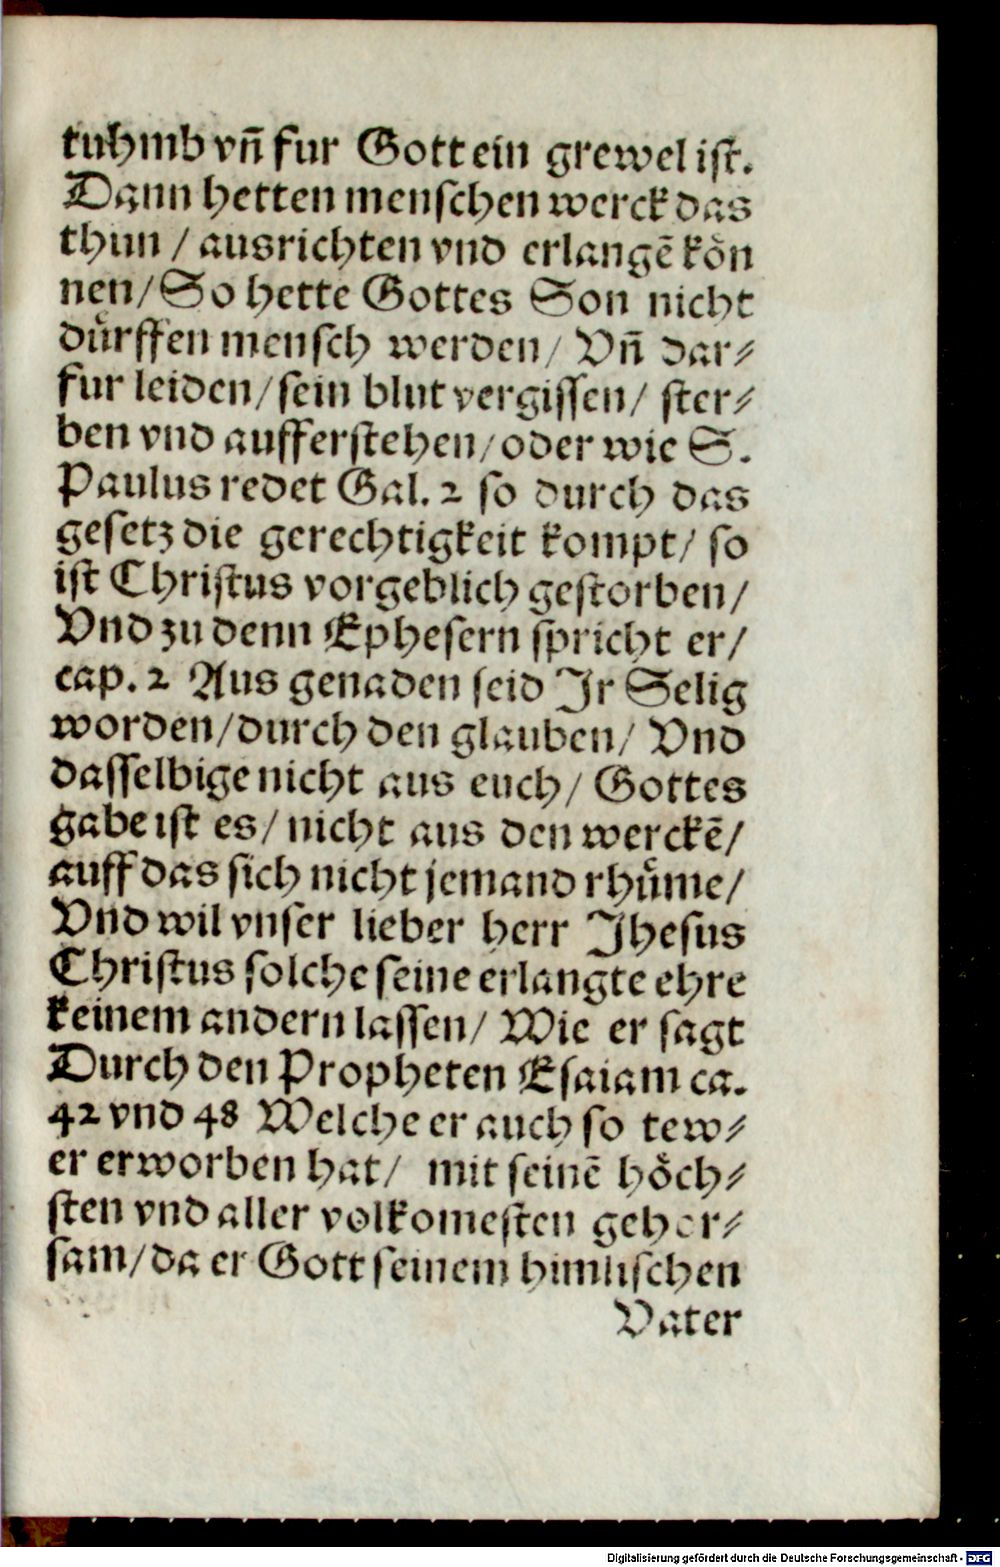 tuhmb vñ fur Gott ein grewel ist.
Dann hetten menschen werck das
thun / ausrichten vnd erlangē kön
nen/ So hette Gottes Son nicht
dürffen mensch werden/ Vñ dar⸗
fur leiden/ sein blut vergissen/ ster⸗
ben vnd aufferstehen/ oder wie S.
Paulus redet Gal. 2 so durch das
gesetz die gerechtigkeit kompt/ so
ist Christus vorgeblich gestorben/
Vnd zu denn Ephesern spricht er/
cap. 2 Aus genaden seid Jr Selig
worden/ durch den glauben/ Vnd
dasselbige nicht aus euch/ Gottes
gabe ist es/ nicht aus den werckē/
auff das sich nicht jemand rhüme/
Vnd wil vnser lieber herr Jhesus
Christus solche seine erlangte ehre
keinem andern lassen/ Wie er sagt
Durch den Propheten Esaiam ca.
42 vnd 48 Welche er auch so tew⸗
er erworben hat/ mit seinē höch⸗
sten vnd aller volkomesten gehor⸗
sam/ da er Gott seinem himlischen
Vater
Digitalisierung gefördert durch die Deutsche Forschungsgemeinschaft - DFG